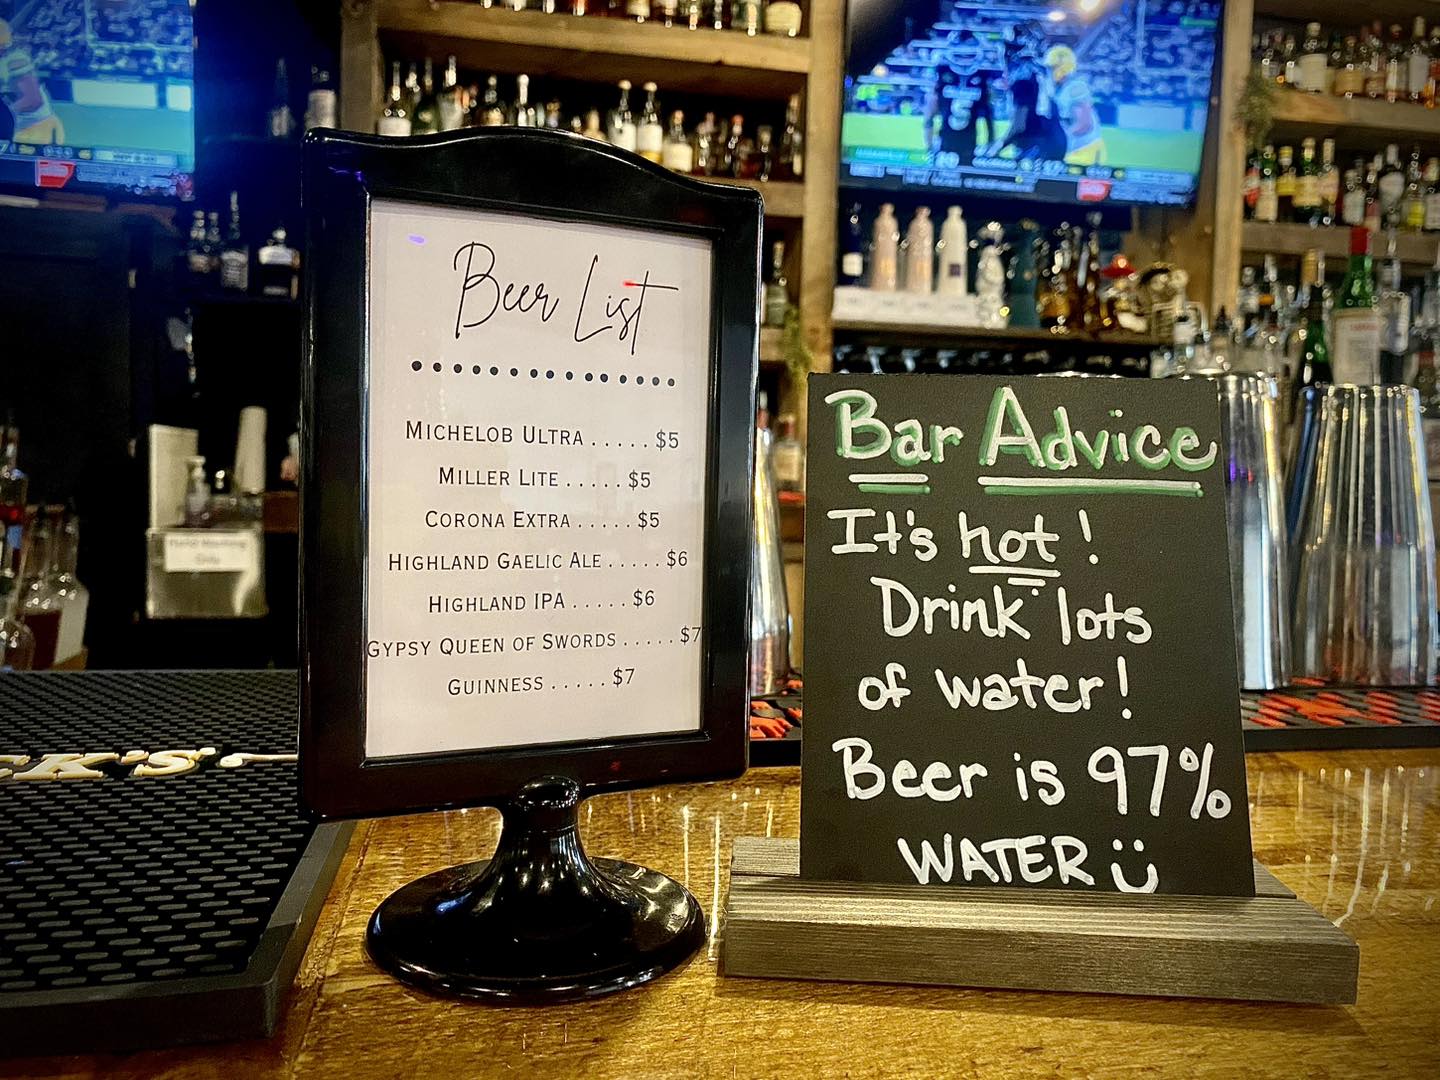 Beer List
MICHELOB ULTRA ..... $5
MILLER LITE ..... $5
CORONA EXTRA ..... $5
HIGHLAND GAELIC ALE ..... $6
HIGHLAND IPA ..... $6
GYPSY QUEEN OF SWORDS ..... $7
GUINNESS ..... $7
Bar Advice
It's hot!
Drink lots
of water!
Beer is 97%
WATER
CK'S